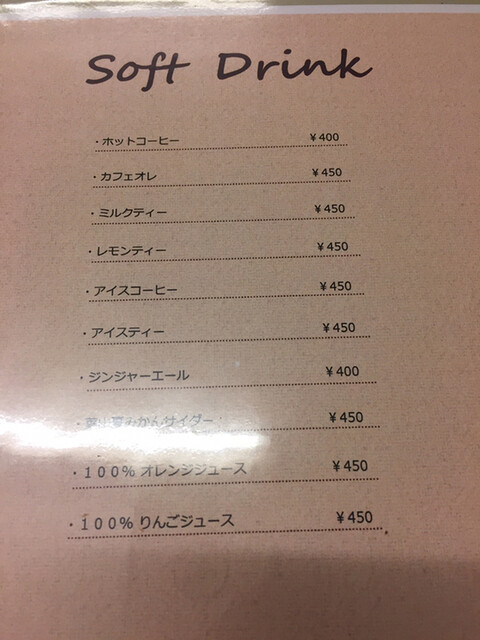 Soft Drink
・ホットコーヒー ￥400
・カフェオレ ￥450
・ミルクティー ￥450
・レモンティー ￥450
・アイスコーヒー ￥450
・アイスティー ￥450
・ジンジャーエール ￥400
・葉山夏みかんサイダー ￥450
・１００％オレンジジュース ￥450
・１００％りんごジュース ￥450